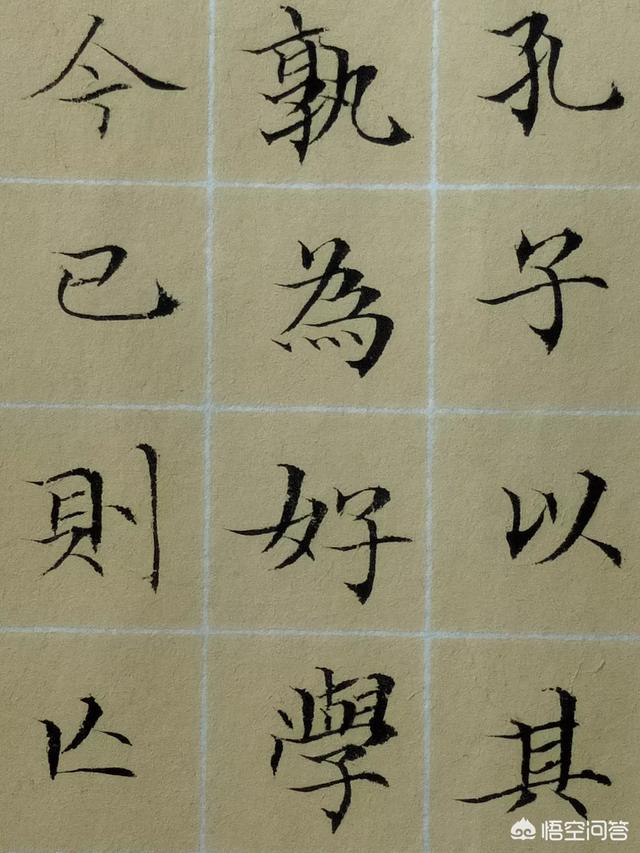 孔子以其
孰為好學
今已則亾
悟空问答